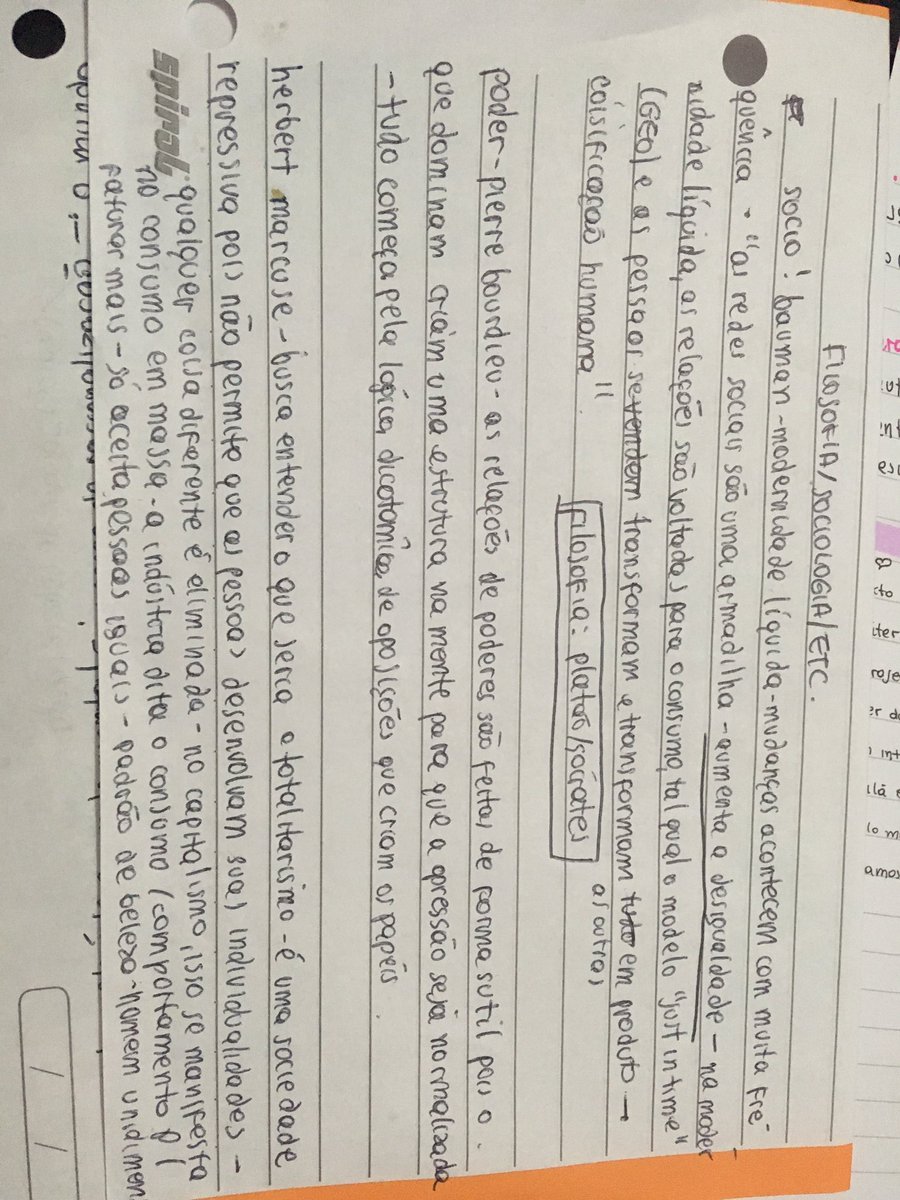 FILOSOFIA/SOCIOLOGIA/ETC.
socio! bauman-modernidade líquida-mudanças acontecem com muita fre-
quência → "as redes sociais são uma armadilha - aumenta a desigualdade - na moder-
nidade líquida, as relações são voltadas para o consumo, tal qual o modelo "just in time"
(GEO) e as pessoas se vendem transformam e transformam tudo em produto →
as outras
coisificação humana".
filosofia: platão/sócrates
poder-pierre bourdieu-as relações de poderes são feitas de forma sutil pois o.
que dominam criam uma estrutura na mente para que a opressão seja normalizada
-tudo começa pela lógica dicotômica, de oposições que criam os papéis.
herbert marcuse-busca entender o que seria o totalitarismo-é uma sociedade
repressiva pois não permite que as pessoas desenvolvam suas individualidades -
qualquer coisa diferente é eliminada-no capitalismo, isso se manifesta
no consumo em massa-a indústria dita o consumo (comportamento p/
faturar mais-só aceita pessoas iguais-padrão de beleza-homem unidimen
spiral